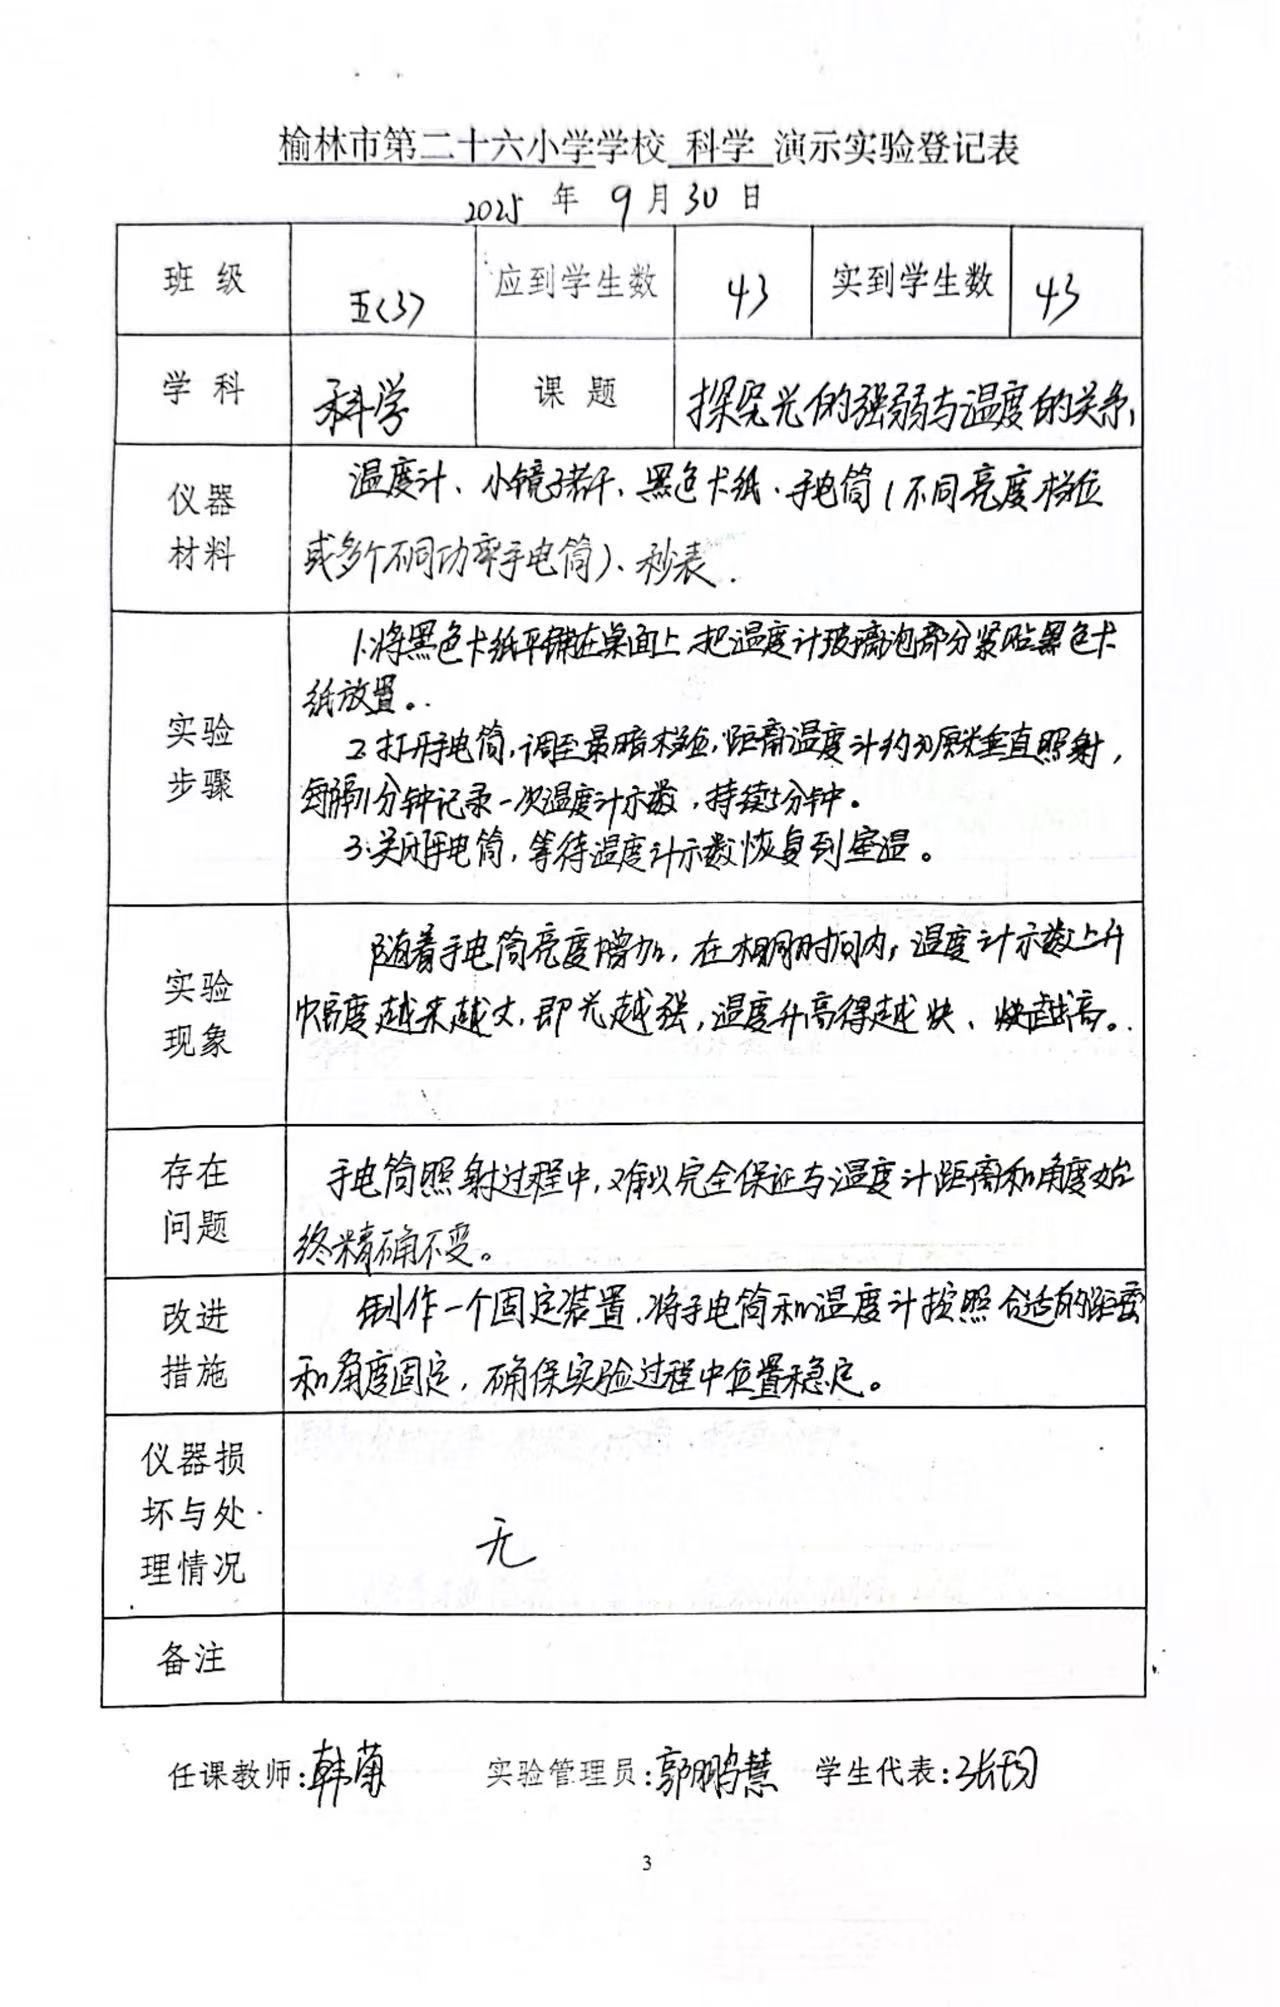 榆林市第二十六小学学校 科学 演示实验登记表
2025 年 9 月 30 日
班 级 五(3) 应到学生数 43 实到学生数 43
学 科 科学 课 题 探究光的强弱与温度的关系
仪器
材料
温度计、小镜子若干、黑色卡纸、手电筒(不同亮度档位
或多个不同功率手电筒)、秒表.
实验
步骤
1.将黑色卡纸平铺在桌面上,把温度计玻璃泡部分紧贴黑色卡
纸放置。
2.打开手电筒,调至最暗档位,距离温度计约 厘米垂直照射,
每隔1分钟记录一次温度计示数,持续5分钟。
3.关闭手电筒,等待温度计示数恢复到室温。
实验
现象
随着手电筒亮度增加,在相同时间内,温度计示数上升
幅度越来越大,即光越强,温度升高得越快、越高。
存在
问题
手电筒照射过程中,难以完全保证与温度计距离和角度始
终精确不变。
改进
措施
制作一个固定装置,将手电筒和温度计按照合适的距离
和角度固定,确保实验过程中位置稳定。
仪器损
坏与处
理情况
无
备注
任课教师:韩菊 实验管理员:郭鹏慧 学生代表:张
3